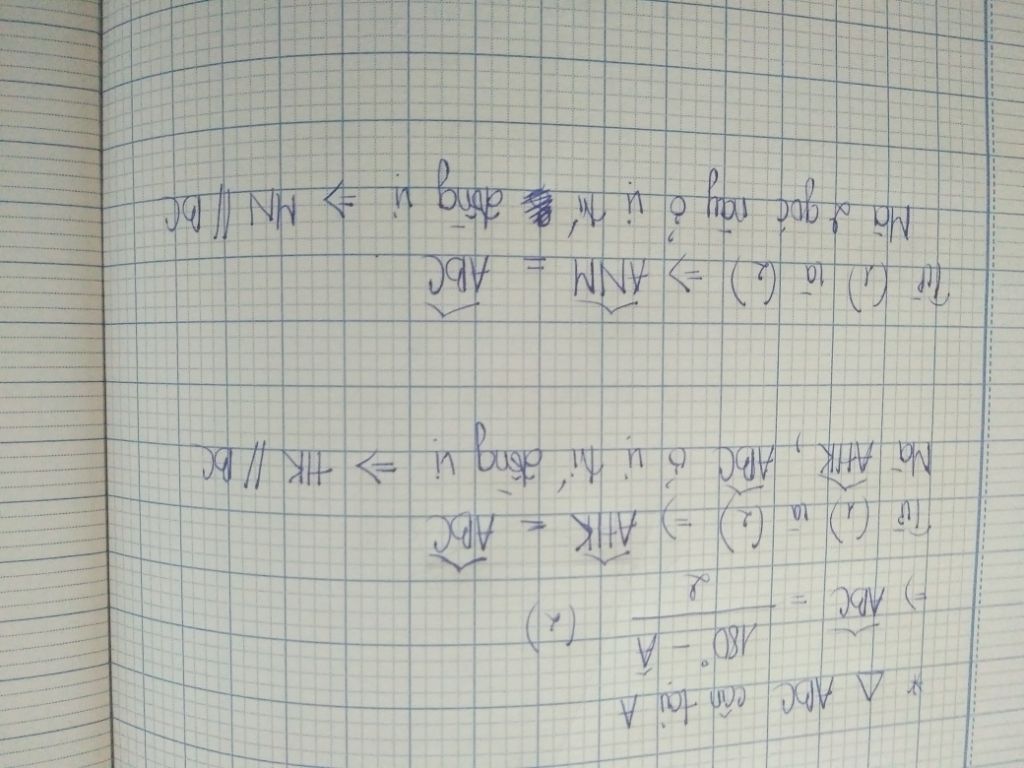 * △ ABC cân tại A
⇒ \widehat{ABC} = \frac{180° - \widehat{A}}{2} (2)
Từ (1) và (2) ⇒ \widehat{AHK} = \widehat{ABC}
Mà \widehat{AHK}, \widehat{ABC} ở vị trí đồng vị ⇒ HK // BC
Từ (1) và (2) ⇒ \widehat{ANM} = \widehat{ABC}
Mà 2 góc này ở vị trí đồng vị ⇒ MN // BC